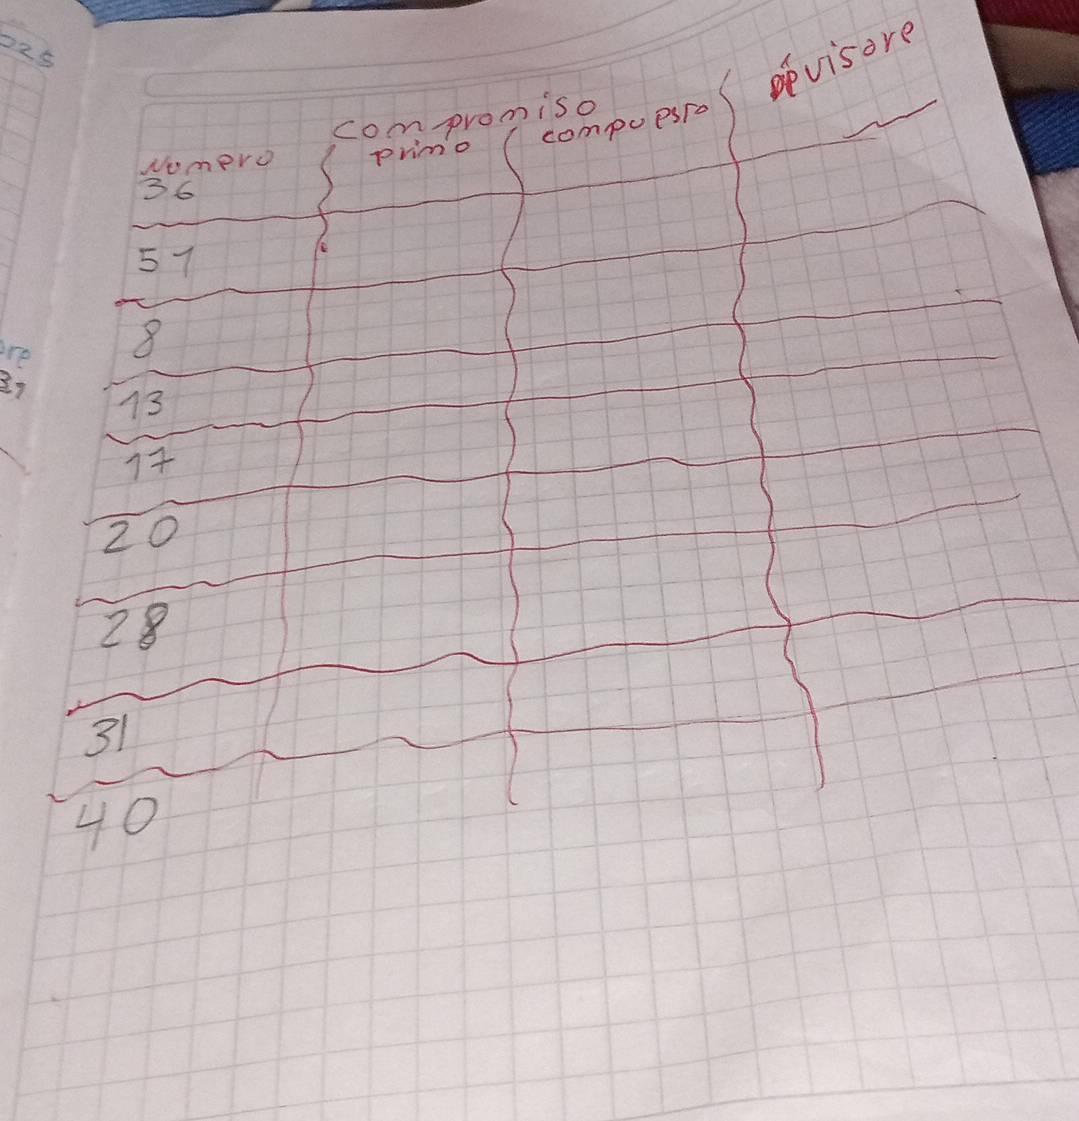 025
compromiso
Nomero primo compuesto devisore
36
51
8
13
17
20
28
31
40